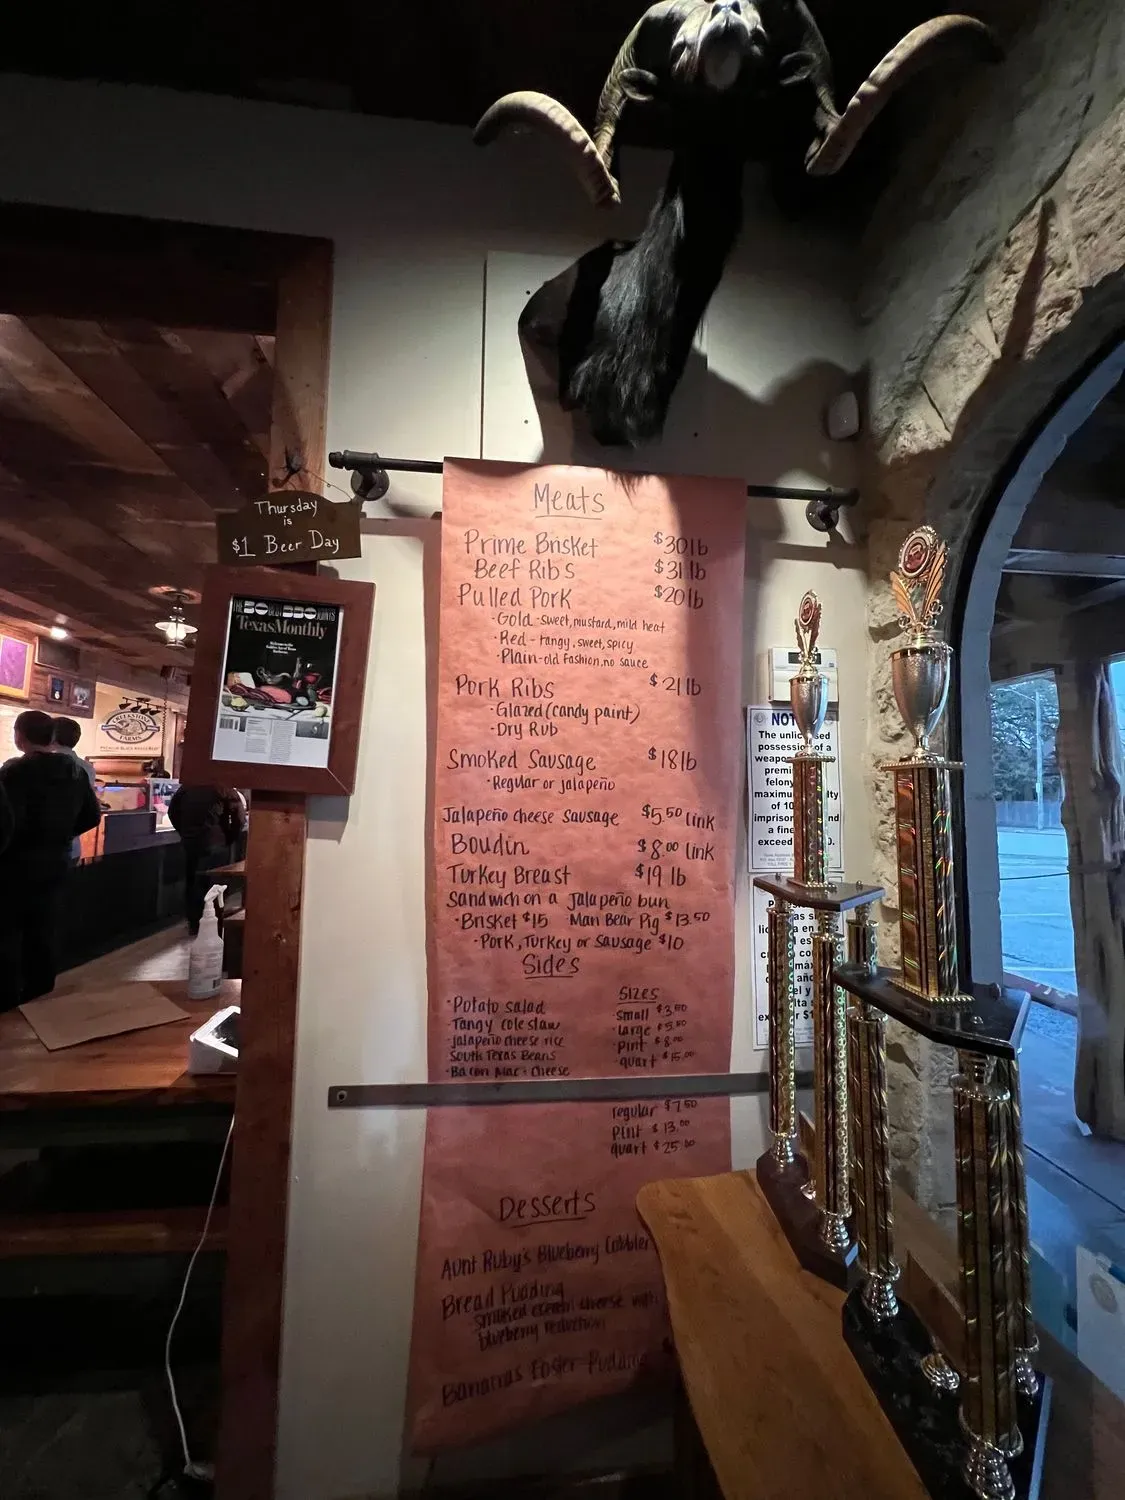 Thursday
is
$1 Beer Day
THE 50 BEST BBQ JOINTS
TexasMonthly
CREEKSTONE
FARMS
PREMIUM BLACK ANGUS BEEF
Meats
Prime Brisket $30 lb
Beef Ribs $31 lb
Pulled Pork $20 lb
· Gold - sweet, mustard, mild heat
· Red - tangy, sweet, spicy
· Plain - old fashion, no sauce
Pork Ribs $21 lb
· Glazed (candy paint)
· Dry Rub
Smoked Sausage $18 lb
· Regular or jalapeño
Jalapeño cheese sausage $5.50 link
Boudin $8.00 link
Turkey Breast $19 lb
Sandwich on a Jalapeño bun
· Brisket $15 Man Bear Pig $13.50
· Pork, Turkey or Sausage $10
Sides
· Potato salad
· Tangy coleslaw
· Jalapeño cheese rice
South Texas Beans
· Bacon Mac & cheese
Sizes
small $3.50
· large $5.50
· pint $8.00
· quart $15.00
regular $7.50
pint $13.00
quart $25.00
Desserts
Aunt Ruby's Blueberry Cobbler
Bread Pudding
smoked cream cheese
blueberry reduction
Bananas Foster Pudding
The unlicensed
possession of a
felony
maximum
of 10
and
a fine
exceed